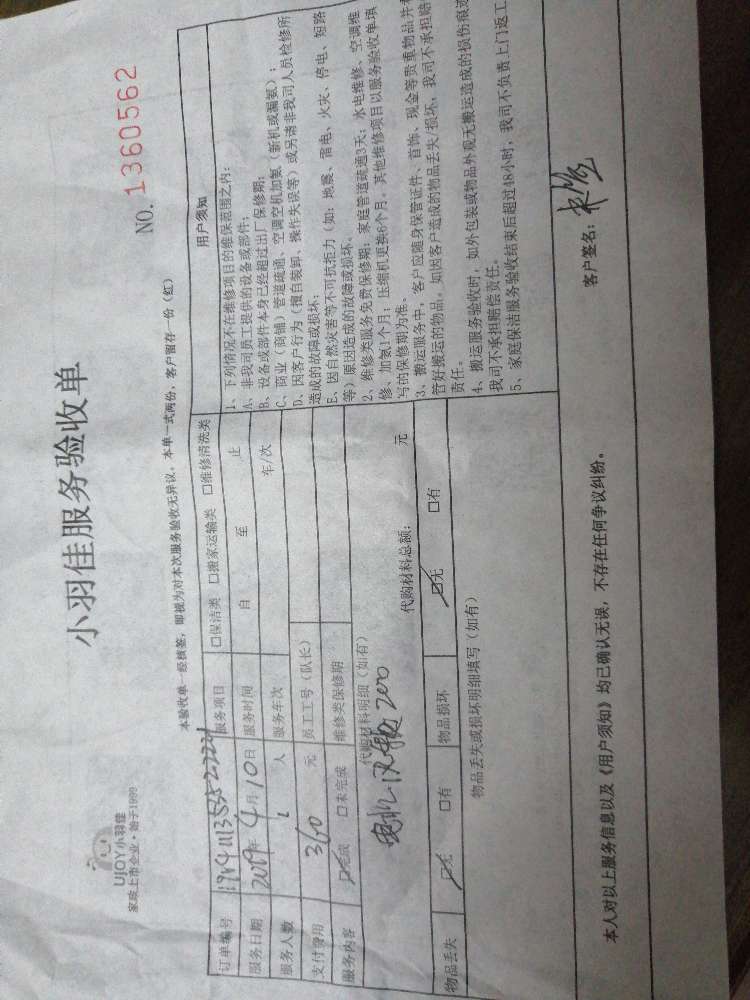 UJOY小羽佳
家政上市企业·始于1999
小羽佳服务验收单
NO. 1360562
本验收单一经核签，即视为对本次服务验收无异议。本单一式两份，客户留存一份（红）
订单编号
服务项目 □保洁类 □搬家运输类 □维修清洗类
服务日期 2019年4月10日 服务时间 自 至 止
服务人数 人 服务车次 车/次
支付费用 360 元 员工工号（队长）
服务内容 ☑完成 □未完成 维修类保修期
代购材料明细（如有）
代购材料总额： 元
物品丢失 ☑无 □有 物品损坏 ☑无 □有
物品丢失或损坏明细填写（如有）
用户须知
1、下列情况不在维修项目的维保范围之内：
A、非我司员工提供的设备或部件；
B、设备或部件本身已经超过出厂保修期；
C、商业（商铺）管道疏通、空调空机加氨（新机或漏氨）；
D、因客户行为（擅自装卸、操作失误等）或另请非我司人员检修所
造成的故障或损坏；
E、因自然灾害等不可抗拒力（如：地震、雷电、火灾、停电、短路
等）原因造成的故障或损坏。
2、维修类服务免费保修期：家庭管道疏通3天；水电维修、空调维
修、加氨1个月；压缩机更换6个月；其他维修项目以服务验收单填
写的保修期为准。
3、搬运服务中，客户应随身保管证件、首饰、现金等贵重物品并
管好搬运的物品。如因客户造成的物品丢失/损坏，我司不承担赔
责任。
4、搬运服务验收时，如外包装或物品外观无搬运造成的损伤痕迹
我司不承担赔偿责任。
5、家庭保洁服务验收结束后超过48小时，我司不负责上门返工
本人对以上服务信息以及《用户须知》均已确认无误，不存在任何争议纠纷。
客户签名：